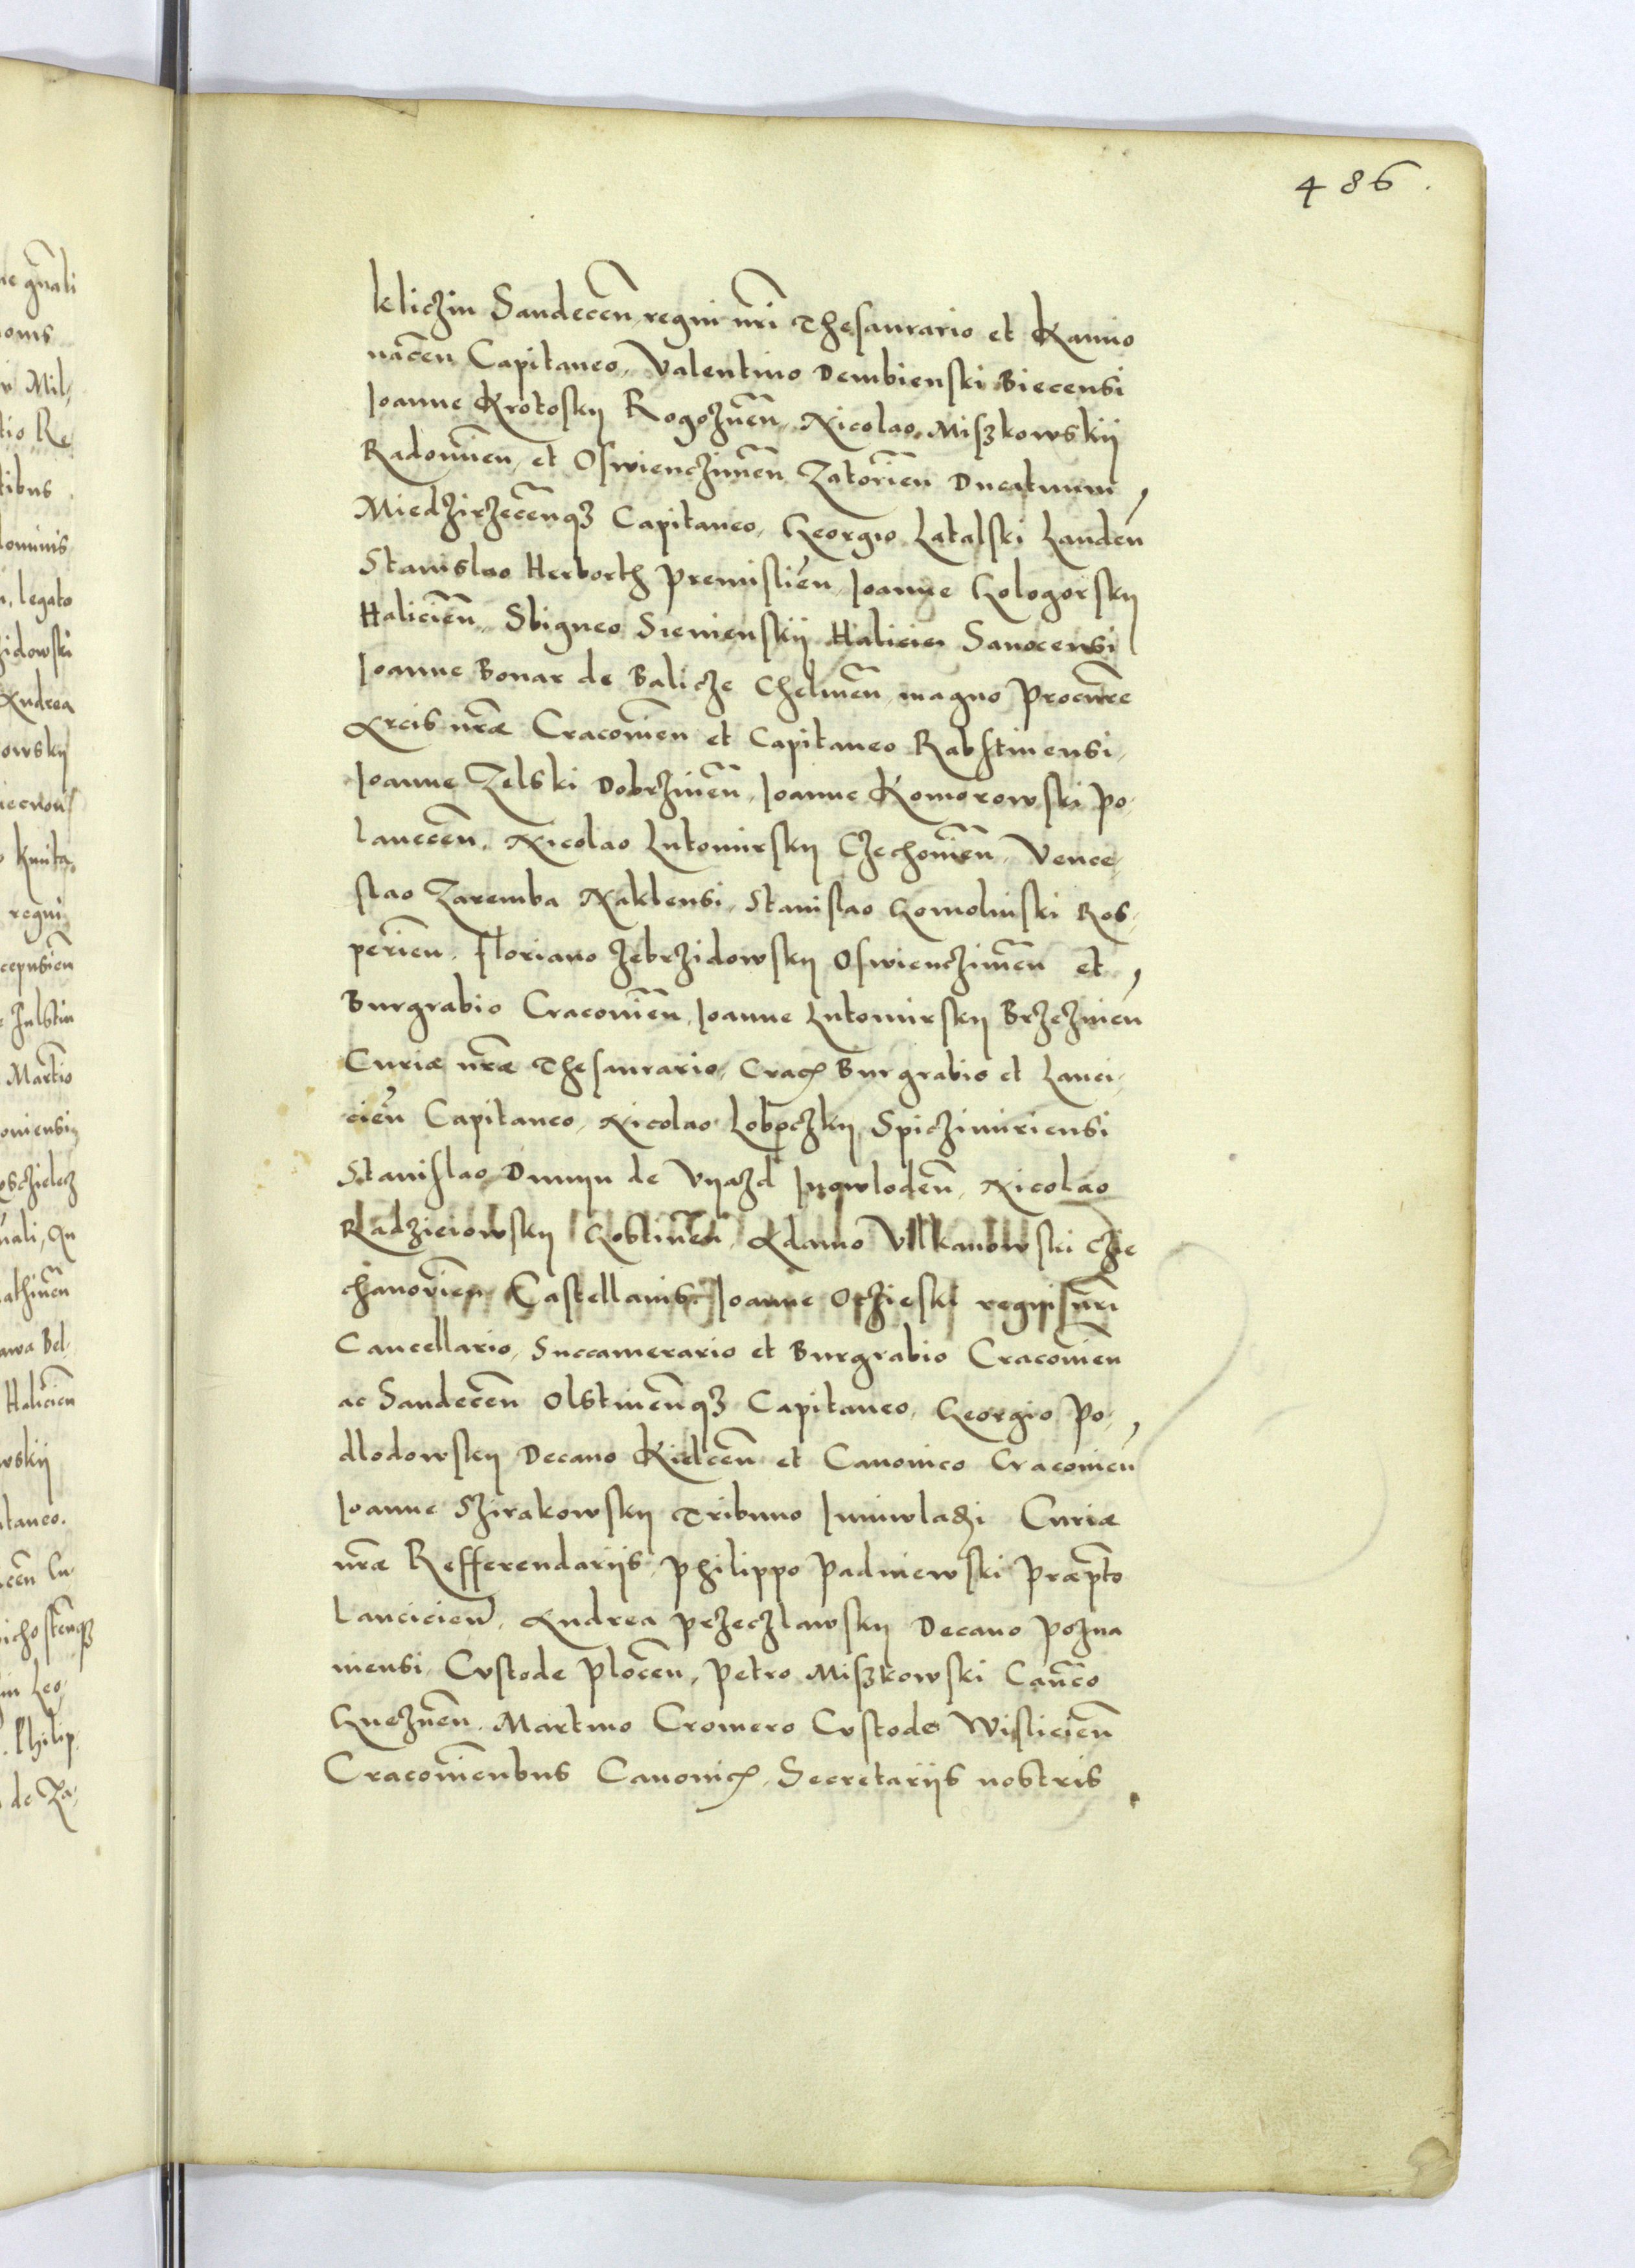 486.
kliczin Sandecen̄, regni nr̄i Thesaurario et Kamio
nācen Capitaneo, Valentino Dembienski Biecensi
Joanne Krotosky Rogoznēn, Nicolao Miszkowskij
Radomien̄, et Oswiencziman̄ Zatorien̄ Ducatuum
Miedzirzecēnqz Capitaneo, Georgio Latalski Landen̄
Stanislao Herborth Premislien̄, Joanne Gologorsky
Haliciēn, Sbigneo Sienienskij Halicien Sanocensi
Joanne Bonar de Balicze Chelmēn, magno Procur̄re
Arcis nr̄æ Cracovien̄ et Capitaneo Rabstinensi,
Joanne Zelski Dobrzinēn, Joanne Komorowski Po-
lanecēn, Nicolao Lutomirsky Czechovien̄, Vence-
slao Zaremba Naklensi, Stanislao Gomolinski Ros-
perien̄, Floriano Zebrzidowsky Oswienczimēn et
Burgrabio Cracovien̄, Joanne Lutomirsky Brzezinien
Curiæ nr̄æ Thesaurario, Crac Burgrabio et Lanci-
ciēn Capitaneo, Nicolao Loboczky Spiczimiriensi
Stanislao Dunyn de Vyazd Jnowlodēn, Nicolao
Radzieiowsky Gostinēn, Adamo Vlkanowski Czie
chanoviēn Castellanis Joanne Oczieski regni nr̄i
Cancellario, Succamerario et Burgrabio Cracovien̄
ac Sandecēn Olstinēnqz Capitaneo, Georgio Po-
dlodowsky Decano Kielcēn et Canonico Cracovien̄
Joanne Szirakowsky Tribuno Curiæ
nr̄æ Refferendariis, Philippo Padniewski Præpt̄o
Lancicien̄, Andrea Przeczlawsky Decano Pozna
niensi, Custode Plocēn, Petro Miszkowski Can̄co
Gneznēn, Martino Cromero Custode Wisliciēn
Cracovienbus Canonic, Secretariis nostris